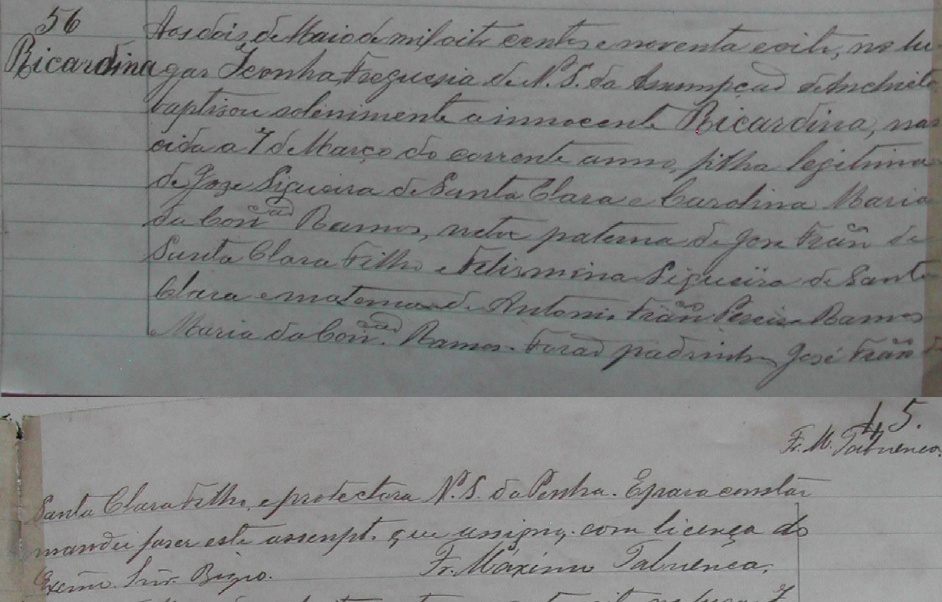 56
Ricardina
Aos dois de Maio de mil oito centos e noventa e oito, no lu
gar Iconha, Freguesia de N. S. da Assumpçaõ de Anchieta
baptisou solenimente a innocente Ricardina, nas
cida a 7 de Março do corrente anno, filha legitima
de Jose Sigueira de Santa Clara e Carolina Maria
da Con.çaõ Ramos, neta paterna de Jose Fran.co de
Santa Clara Filho e Felismina Sigueira de Santa
Clara e materna de Antonio Fran.co Ramos
Maria da Con.çaõ Ramos. Foraõ padrinhos José Fran.co de
15.
Fr. M. Tabuenca.
Santa Clara Filho, e protectora N. S. da Penha. E para constar
mandei faser este assempt. que assigno. com licença do
Exemo Snr. Bispo. Fr. Maximo Tabuenca.